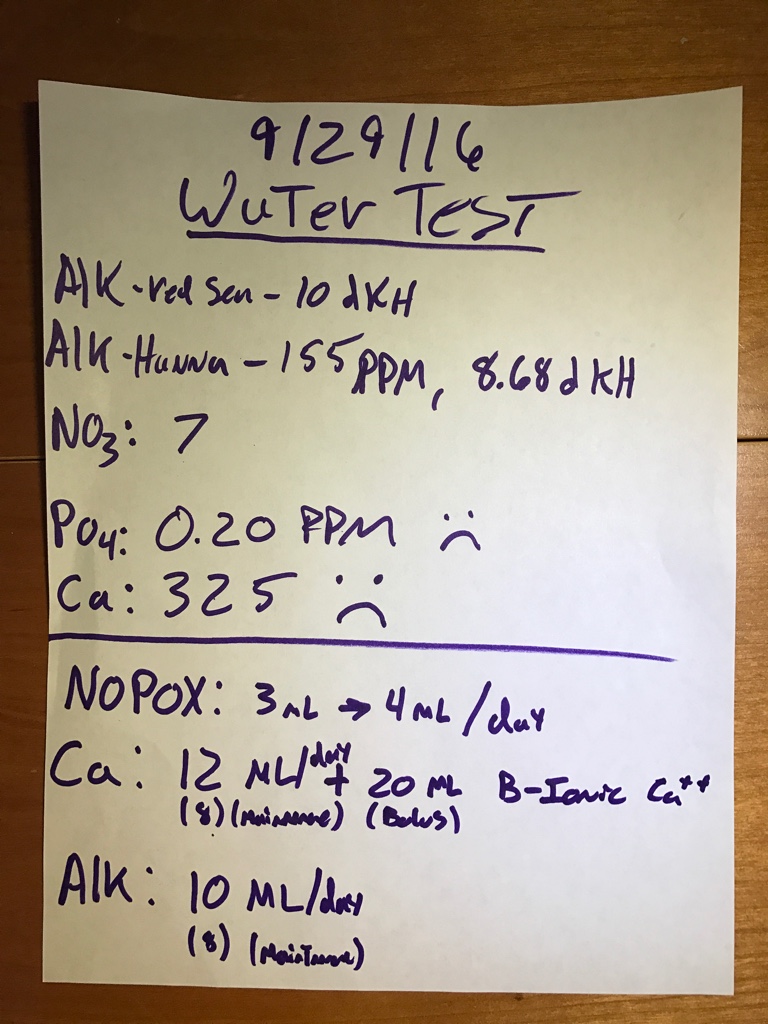 9/29/16
Water Test
Alk-red sea - 10 dKH
Alk-Hanna - 155 PPM, 8.68 dKH
NO3: 7
PO4: 0.20 PPM :(
Ca: 325 :(
NOPOX: 3mL → 4mL/day
Ca: 12 mL/day + 20 mL B-Ionic Ca++
(8) (Maintenance) (Bolus)
Alk: 10 mL/day
(8) (Maintenance)